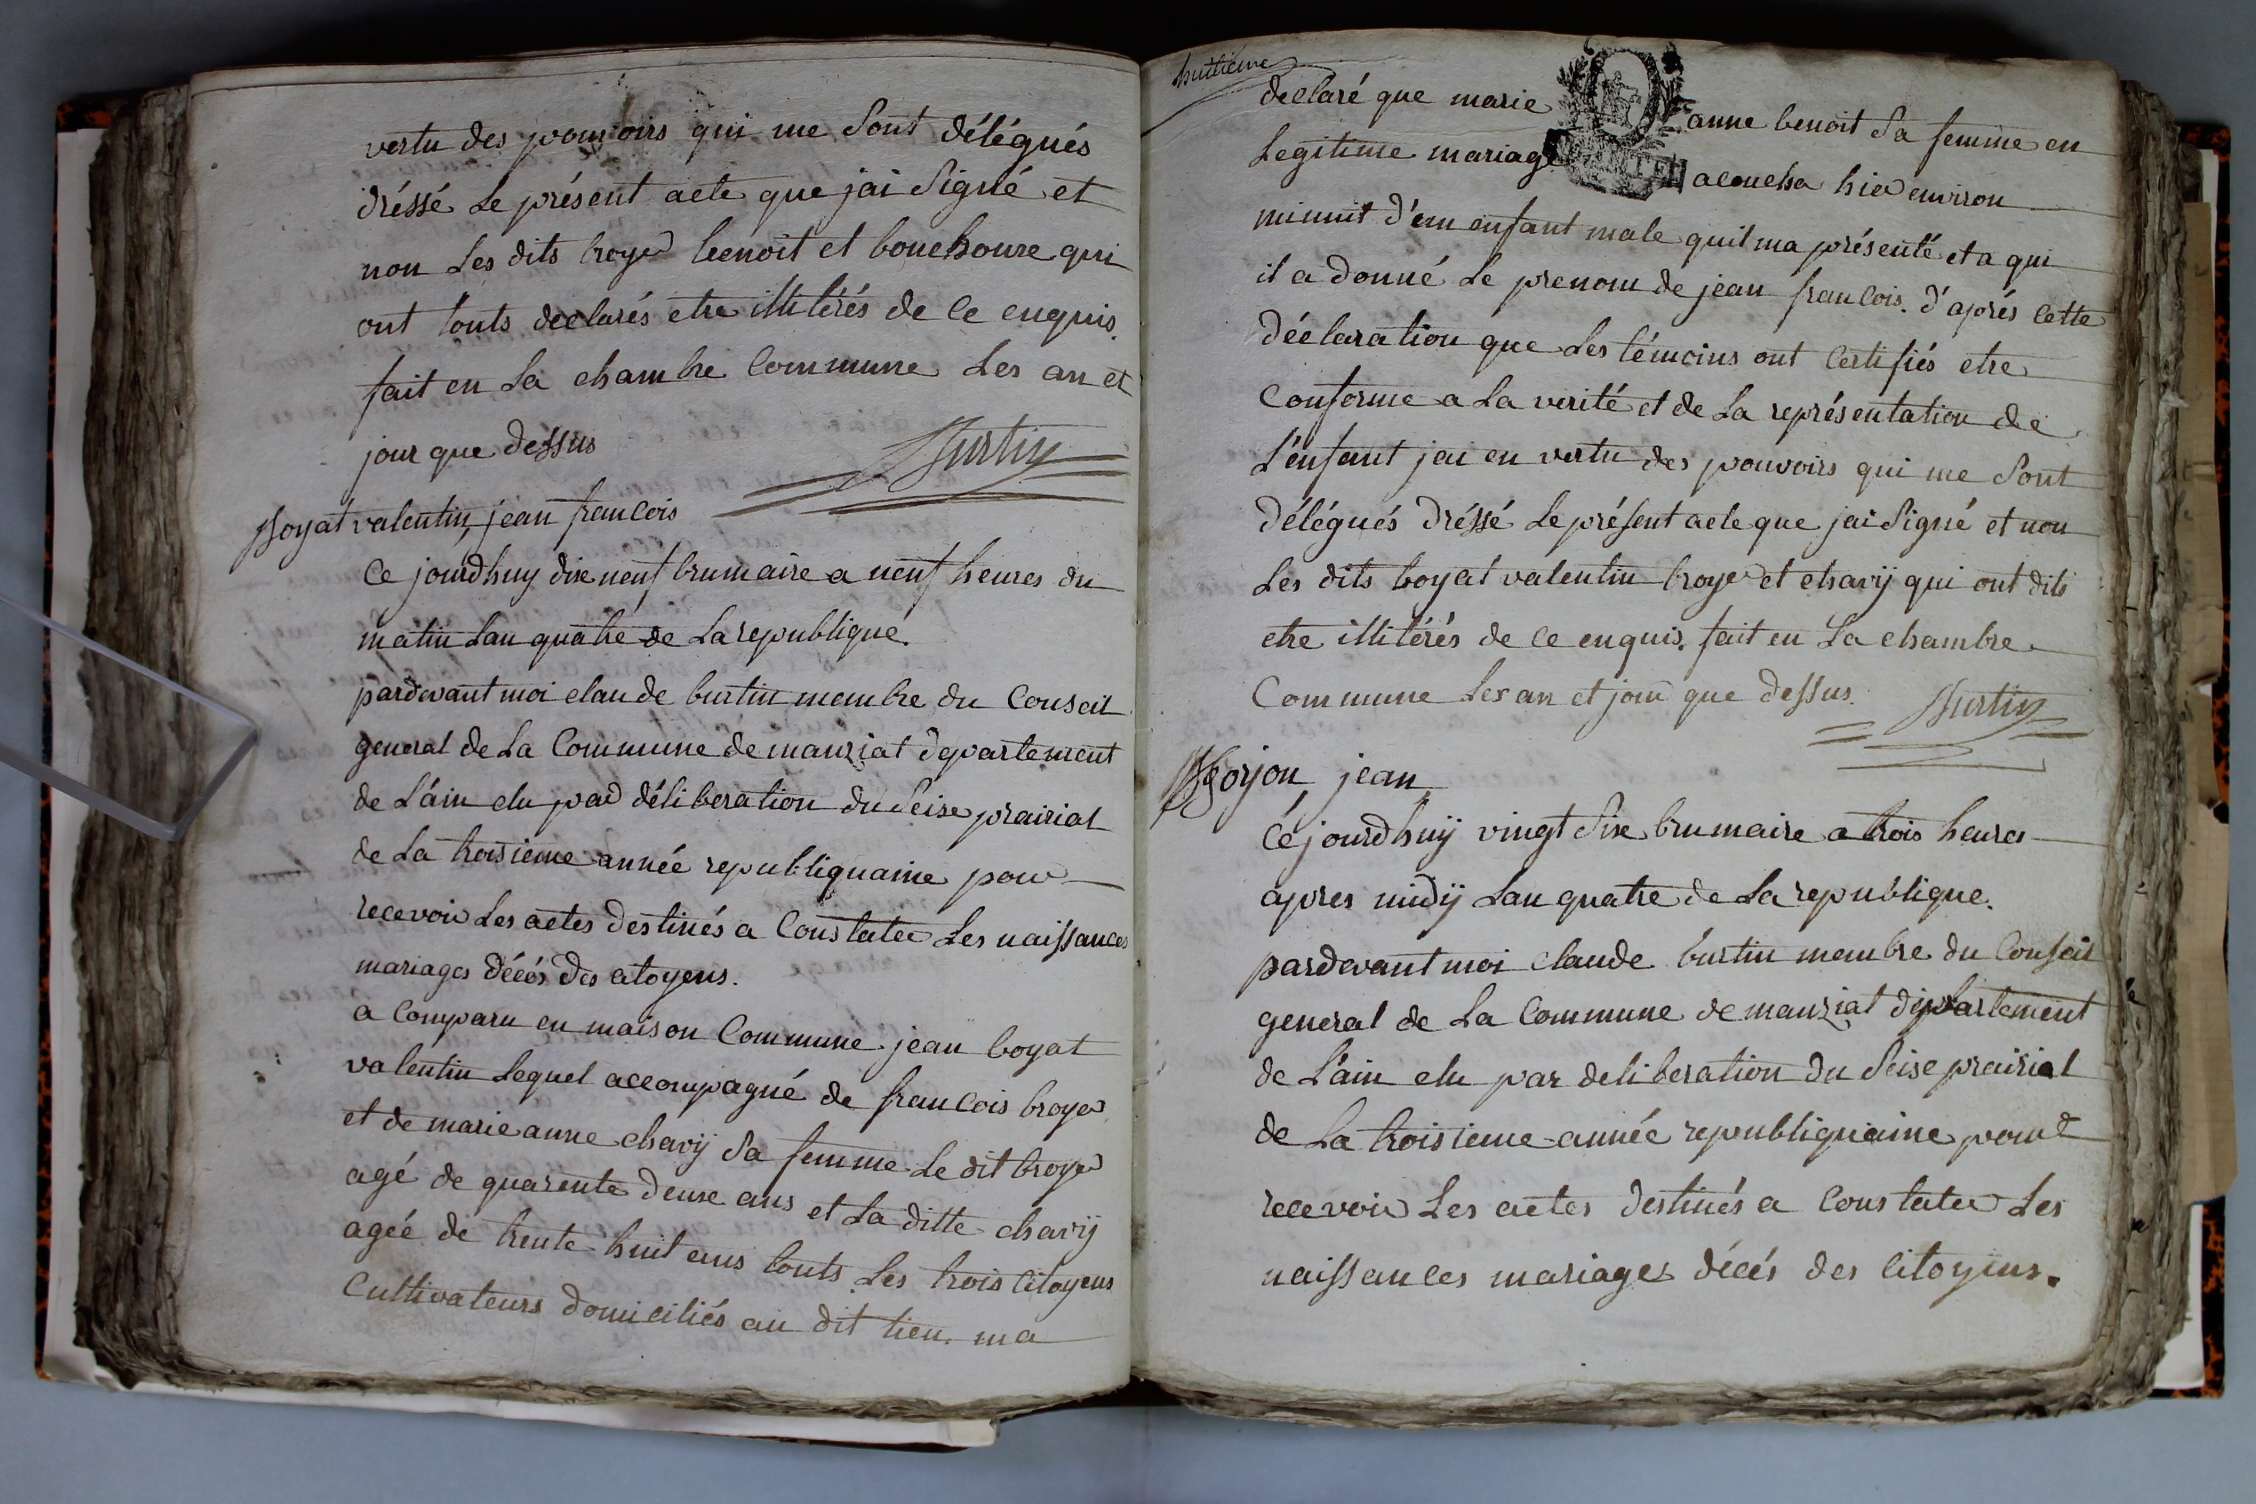 vertu des pouvoirs qui me sont délégués
dréssé le présent acte que jai signé et
non les dits broyer benoit et bouchoure qui
ont touts declarés etre illitérés de ce enquis.
fait en la chambre commune les an et
jour que dessus
Burtin
Boyat valentin, jean francois
Ce jourdhuy dixe neuf brumaire a neuf heures du
matin lan quatre de la republique.
pardevant moi claude burtin membre du conseil
general de la commune de manziat departement
de l'ain elu par déliberation du seise prairial
de la troisieme année republiquaine pour
recevoir les actes destinés a constater les naissances
mariages décés des citoyens.
a comparu en maison commune jean boyat
valentin lequel accompagné de francois broyer
et de marie anne chavÿ sa femme le dit broyer
agé de quarente deuxe ans et la ditte chavÿ
agée de trente huit ans touts les trois citoyens
cultivateurs domiciliés au dit lieu. ma
huitieme
declaré que marie anne benoit sa femme en
legitime mariage acoucha hier environ
minuit d'un enfant male quil ma présenté et a qui
il a donné le prenom de jean francois. d'aprés cette
déclaration que les témoins ont certifiés etre
conforme a la verité et de la représentation de
l'enfant jai en vertu des pouvoirs qui me sont
délégués dréssé le présent acte que jai signé et non
les dits boyat valentin broyer et chavÿ qui ont dits
etre illitérés de ce enquis. fait en la chambre
commune les an et jour que dessus.
Burtin
jean
Ce jourdhuÿ vingt sixe brumaire a trois heures
apres midÿ lan quatre de la republique.
pardevant moi claude burtin membre du conseil
general de la commune de manziat departement
de l'ain elu par deliberation du seise prairial
de la troisieme année republiquaine pour
recevoir les actes destinés a constater les
naissances mariages décés des citoyens.